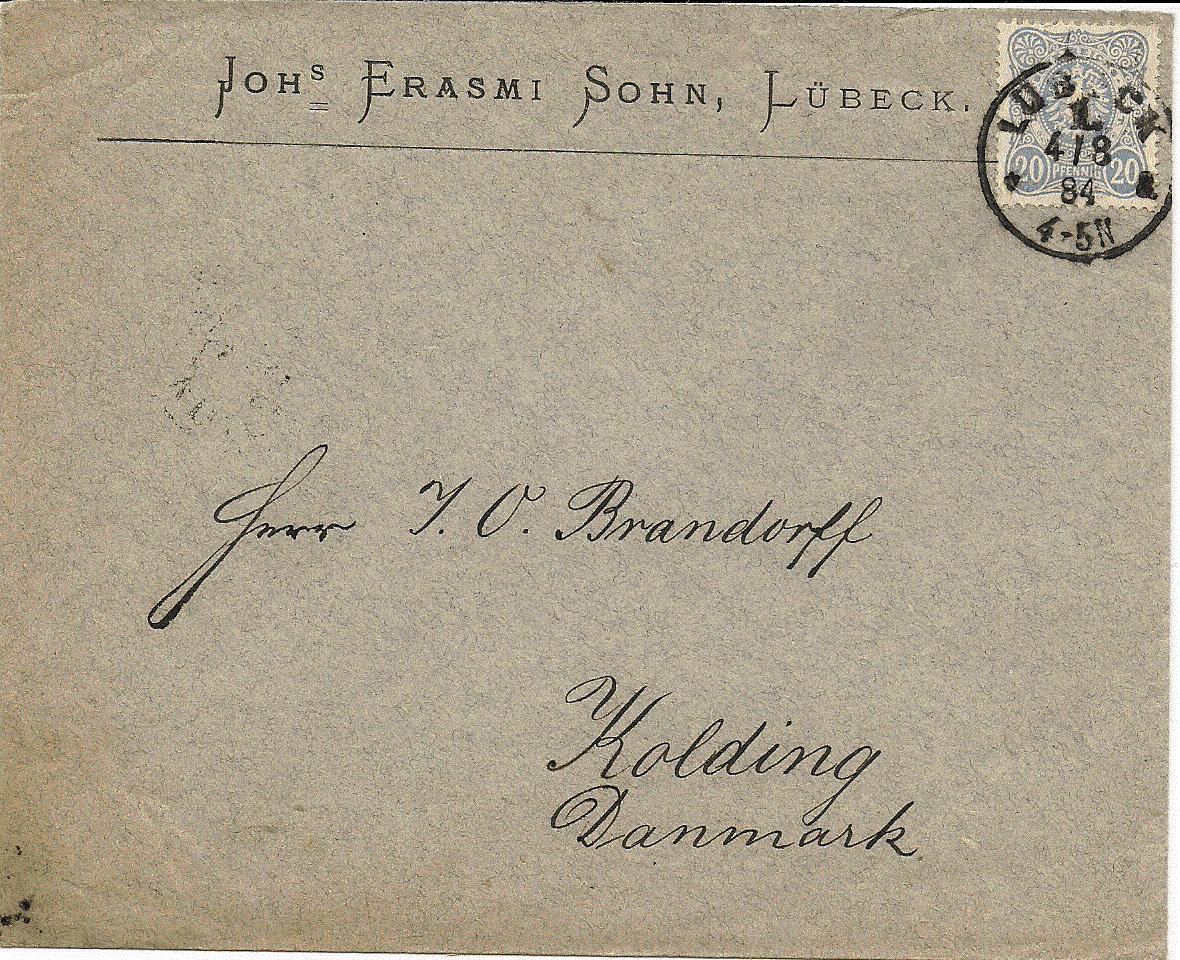 Johs Erasmi Sohn, Lübeck.
LÜBECK
L
4/8
84
4-5N
20 PFENNIG 20
Herr J. O. Brandorff
Kolding
Danmark